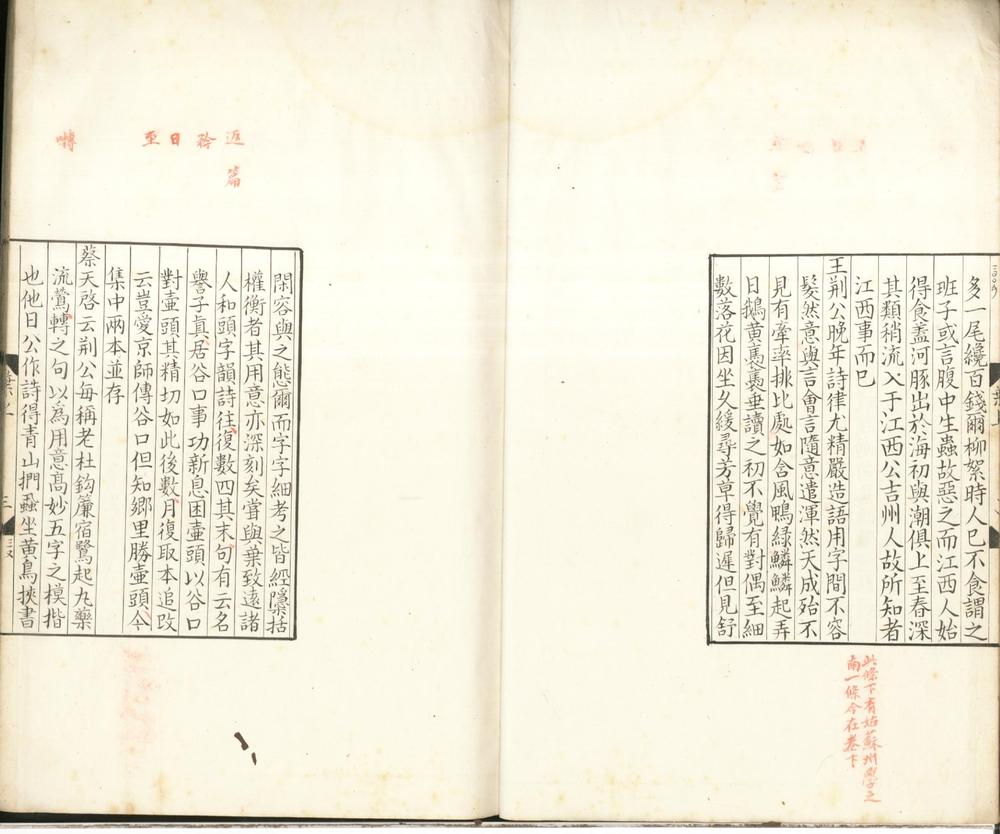 多一尾纔百錢爾柳絮時人巳不食謂之
班子或言腹中生蟲故惡之而江西人始
得食盖河豚出於海初與潮俱上至春深
其類稍流入于江西公吉州人故所知者
江西事而巳
王荆公晚年詩律尤精嚴造語用字間不容
髮然意與言會言隨意遣渾然天成殆不
見有牽率排比處如含風鴨緑鱗鱗起弄
日鵝黄褭褭垂讀之初不覺有對偶至細
數落花因坐久緩尋芳草得歸遲但見舒
此條下有姑蘇州學之
南一條今在卷下
返 矜 日 至 囀
篇
閑容與之態爾而字字細考之皆經隱括
權衡者其用意亦深刻矣嘗與葉致遠諸
人和頭字韻詩往復數四其末句有云名
譽子真居谷口事功新息困壷頭以谷口
對壷頭其精切如此後數月復取本追改
云豈愛京師傳谷口但知郷里勝壷頭今
集中兩本並存
蔡天啓云荆公每稱老杜鈎簾宿鷺起丸藥
流鶯轉之句以為用意髙妙五字之模揩
也他日公作詩得青山捫蝨坐黄鳥挾書
三